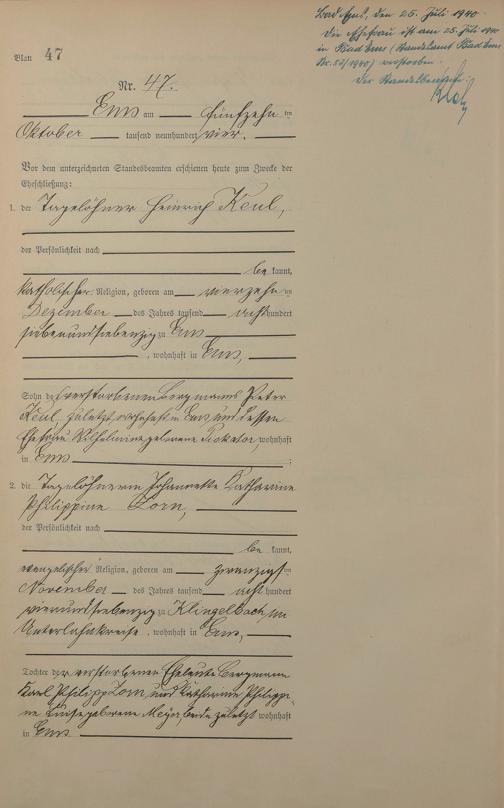 Bad Ems, den 25. Juli 1940.
Die Ehefrau ist am 25. Juli 1940
in Bad Ems (Standesamt Bad Ems
Nr. 52/1940) verstorben.
Der Standesbeamte:
Blatt 47
Nr. 47.
Ems am fünfzehn ten
Oktober tausend neunhundert vier.
Vor dem unterzeichneten Standesbeamten erschienen heute zum Zwecke der
Eheschließung:
1. der Tagelöhner Heinrich Keul,
der Persönlichkeit nach
be kannt,
katholischer Religion, geboren am vierzehn ten
Dezember des Jahres tausend acht hundert
siebenundsiebenzig zu Ems
, wohnhaft in Ems,
Sohn des verstorbenen Bergmanns Peter
Keul, zuletzt wohnhaft in Ems, und dessen
Ehefrau Wilhelmine geborene wohnhaft
in Ems ;
2. die Tagelöhnerin Johannette Katharine
Philippine Zorn,
der Persönlichkeit nach
be kannt,
evangelischer Religion, geboren am zwanzigsten
November des Jahres tausend acht hundert
vierundsiebenzig zu Klingelbach im
Unterlahnkreise, wohnhaft in Ems,
Tochter der verstorbenen Eheleute Bergmann
Karl Philipp Zorn und Katharine Philippi-
ne Luise geborene Meyer, beide zuletzt wohnhaft
in Ems